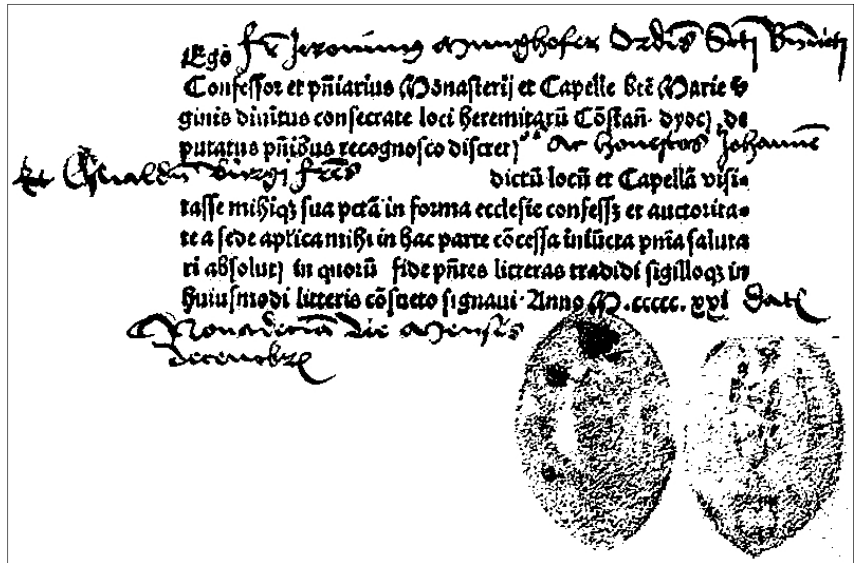 Ego fr Jeronimus Munghofer Ordis Scti Bndicti
Confessor et pn̄iarius Monasterij et Capelle btē Marie v
ginis diuinitus consecrate loci heremitarū Cōstan̄. dyoc̄ de
putatus pn̄ibus recognosco discret) Ac honestos Johannē
Et frēs
dictū locū et Capellā visi-
tasse mihiqz sua pctā in forma ecclesie confesss et auctorita-
te a sede aplica mihi in hac parte cōcessa iniūcta pnīa saluta
ri absolut) in quorū fide pn̄tes litteras tradidi sigilloqz in
huiusmodi litteris cōsueto signaui. Anno M.ccccc.xxi Dat
Nonadecima Die Mensis
Decembr